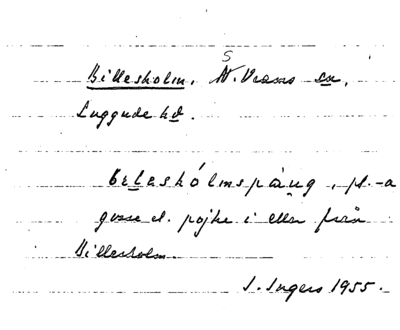 S
Billesholm, N. Vrams sn,
Luggude hd.
bɛlɛshólmspàŋg, pl. -a
gosse el. pojke i eller från
Billesholm.
I. Ingers 1955.